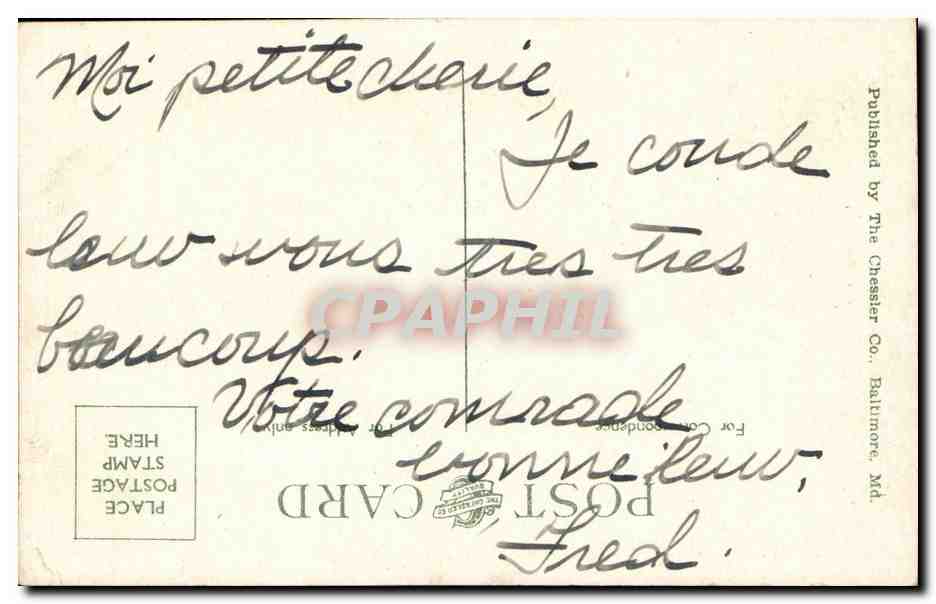 Moi petite cherie,
Je conde
lauv vous tres tres
beaucoup.
Votre comrade
vonne lauv,
Fred.
Published by The Chessler Co., Baltimore, Md.
CPAPHIL
For Address only
For Correspondence
POST CARD
THE CHESSLER CO
QUALITY
PLACE
POSTAGE
STAMP
HERE